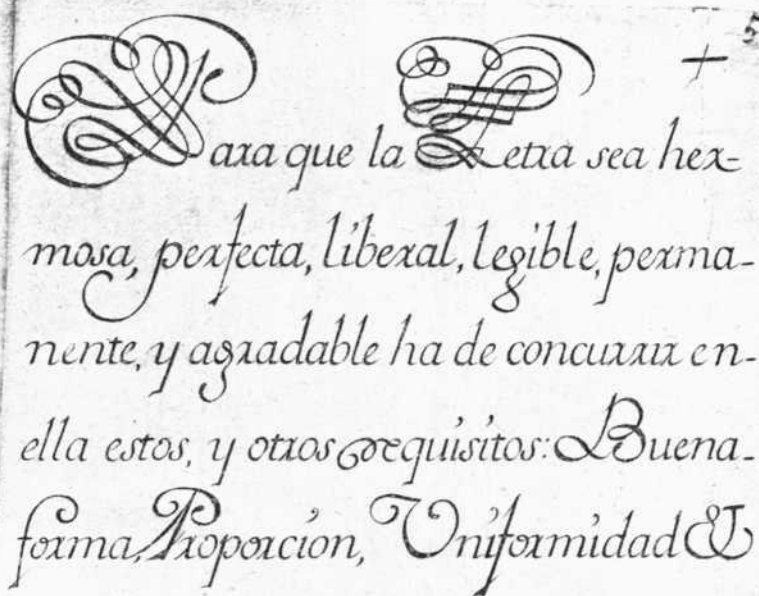 Para que la Letra sea her-
mosa, perfecta, liberal, legible, perma-
nente, y agradable ha de concurrir en-
ella estos, y otros requisitos: Buena-
forma, Proporcion, Uniformidad &